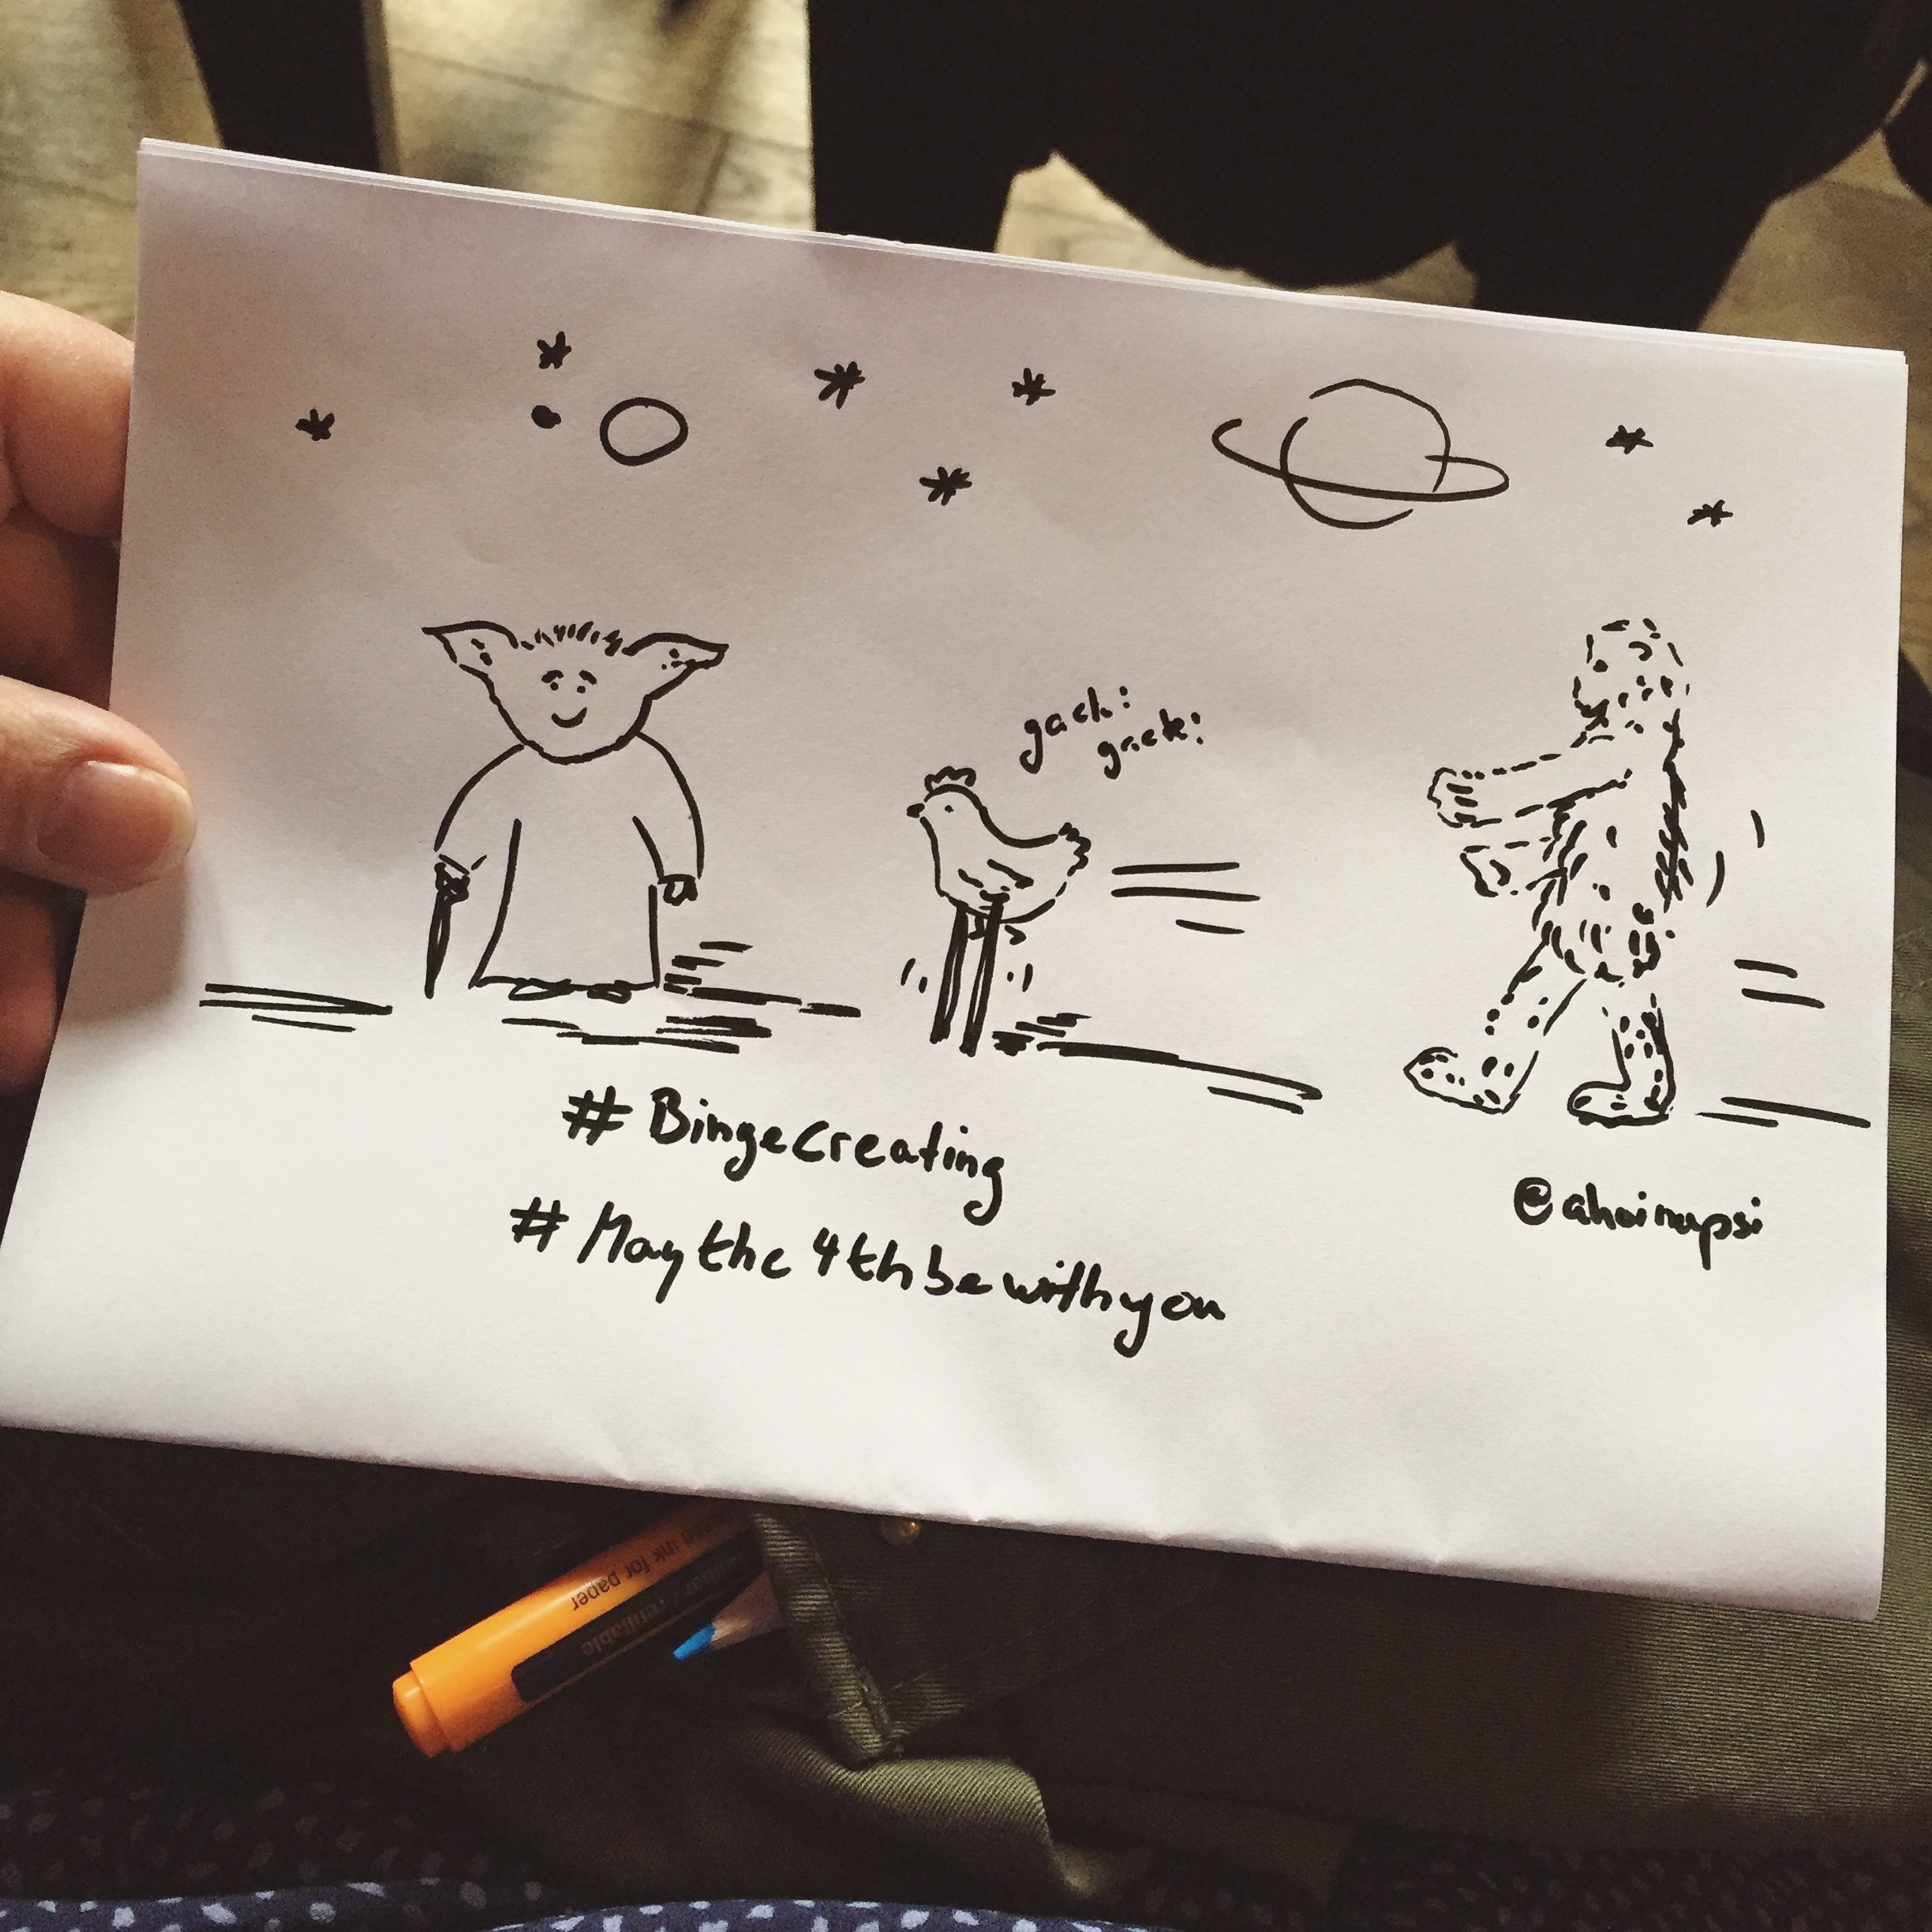 gack!
gack!
# Bingecreating
# Maythe4thbewithyou
@ahoinapsi
ink for paper
refillable